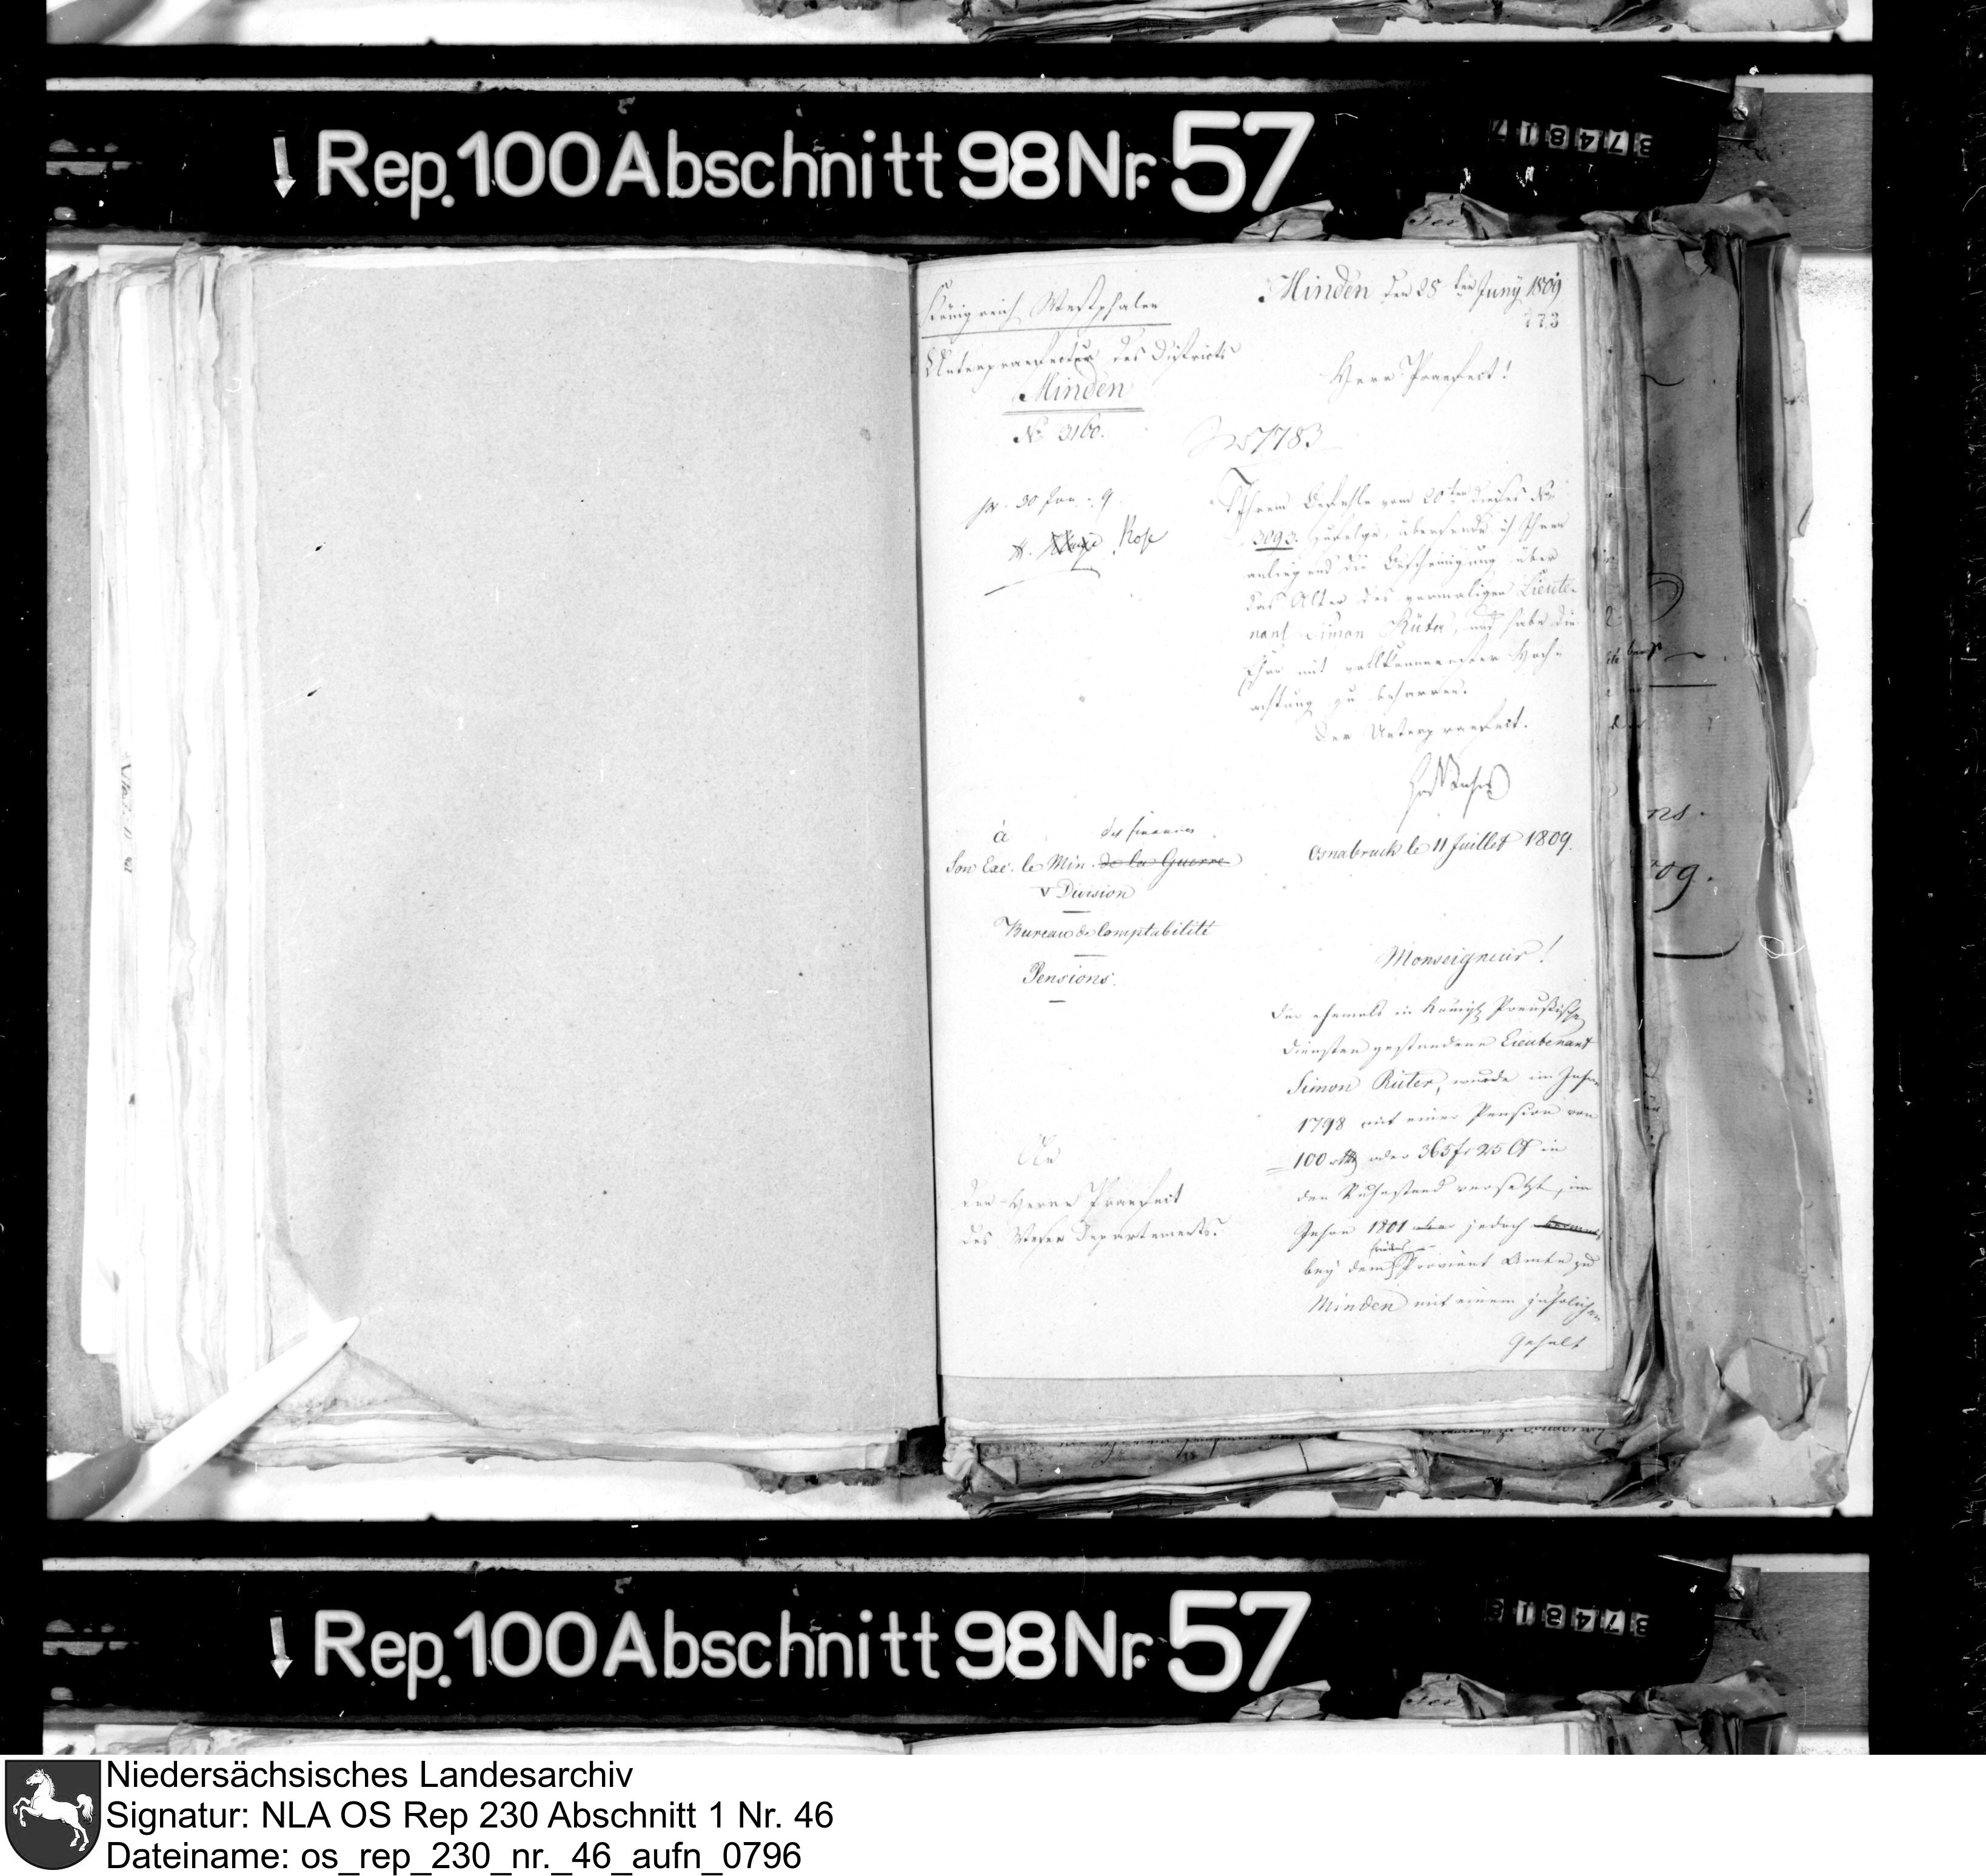 Rep. 100 Abschnitt 98 Nr. 57
374817
Königreich Westphalen
Unterpraefectur des Districts
Minden
No 3160.
Minden den 28ten Juny 1809
773
Herr Praefect!
7783
pr. 30 Jun. 9.
Ihrem Befehle vom 20ten dieses No
3093. zufolge, übersende ich Ihnen
anliegend die Bescheinigung über
das Alter des vormaligen Lieute-
nant Simon Rüter, und habe die
Ehre mit vollkommenster Hoch-
achtung zu beharren.
Der Unterpraefect.
An
den Herrn Praefect
des Weser Departements.
à
des finances
Son Exc. le Min. de la Guerre
V Division
Bureau de Comptabilité
Pensions.
Osnabruck le 11 Juillet 1809.
Monseigneur!
Der ehemals in Königl. Preußischen
Diensten gestandene Lieutenant
Simon Rüter, wurde im Jahre
1798 mit einer Pension von
100 rthlr oder 365 fr 25 Ct in
den Ruhestand versetzt, im
Jahre 1801 aber jedoch
bey dem Proviant Amte zu
Minden mit einem jährlichen
Gehalt
Rep. 100 Abschnitt 98 Nr. 57
374818
Niedersächsisches Landesarchiv
Signatur: NLA OS Rep 230 Abschnitt 1 Nr. 46
Dateiname: os_rep_230_nr._46_aufn_0796